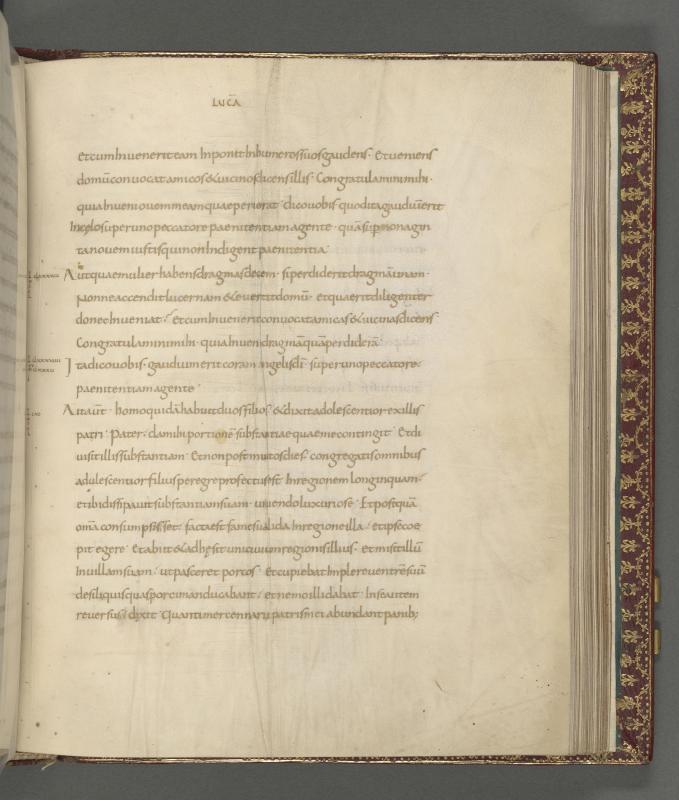 LUCĀ
et cum invenerit eam inponit in humeros suos gaudens · Et veniens
domū convocat amicos & vicinos dicens illis · Congratulamini mihi ·
quia inveni ovem meam quae perierat · dico vobis quod ita gaudiū erit
In celo super uno peccatore paenitentiam agente · quā supra nonagin
ta novem iustis qui non indigent paenitentia ·
Aut quae mulier habens dragmas decem · si perdiderit dragmā unam ·
Nonne accendit lucernam & evertit domū · et quaerit diligenter
donec inveniat · Et cum invenerit convocat amicas & vicinas dicens ·
Congratulamini mihi · quia inveni dragmā quā perdiderā ·
Ita dico vobis · gaudium erit coram angelis dī · super uno peccatore
paenitentiam agente ·
Ait aūt · homo quidā habuit duos filios · & dixit adolescentior ex illis
patri · Pater · da mihi portionē substantiae quae me contingit · Et di
visit illis substantiam · Et non post multos dies · congregatis omnibus
adulescentior filius peregre profectus est · In regionem longinquam ·
et ibi dissipavit substantiam suam · vivendo luxuriose · Et postquā
omīa consumpsisset · facta est fames valida in regione illa · et ipse coe
pit egere · Et abiit & adhesit uni civium regionis illius · et misit illū
In villam suam · ut pasceret porcos · Et cupiebat implere ventrē suū
de siliquis quas porci manducabant · et nemo illi dabat · In se autem
reversus · dixit · Quanti mercennarii patris mei abundant panib;